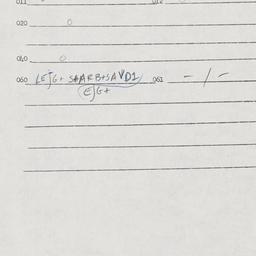 011
020 0
040 0
060 LEJG+ SAARB+SAVD1 061 - / -
EJG+